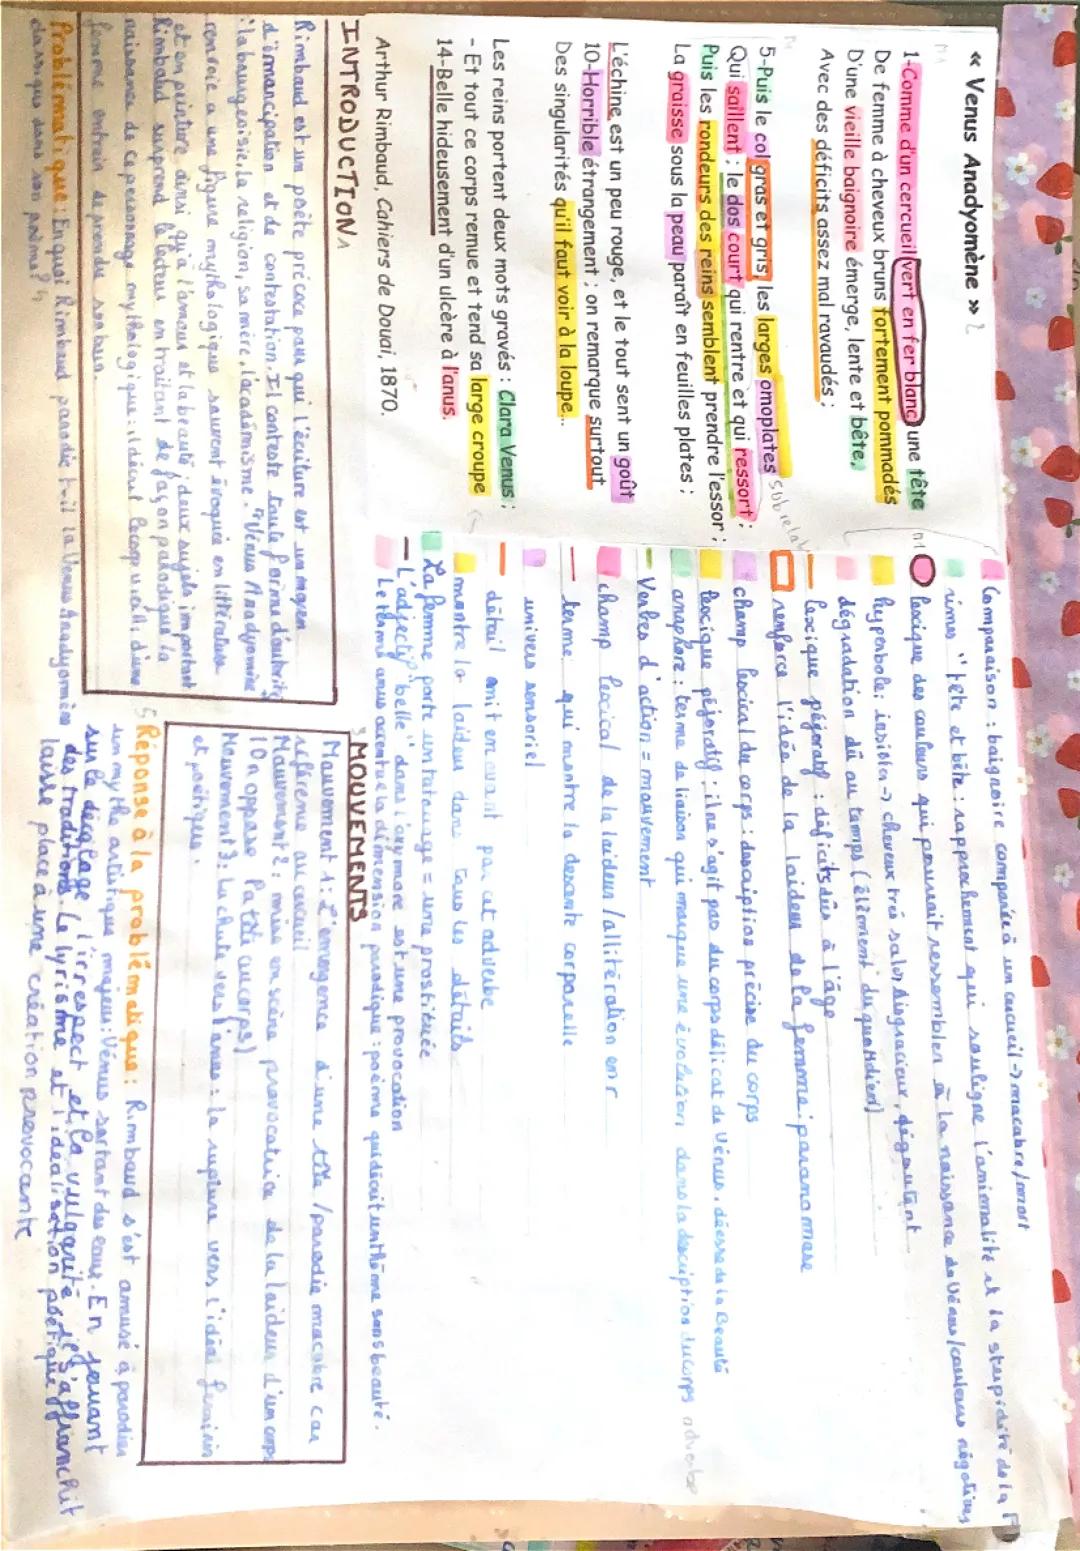 « Venus Anadyomène »
1-Comme d'un cercueil vert en fer blanc, une tête
De femme à cheveux bruns fortement pommadés
D'une vieille baignoire émerge, lente et bête,
Avec des déficits assez mal ravaudés ;
5-Puis le col gras et gris, les larges omoplates
Qui saillent ; le dos court qui rentre et qui ressort ;
Puis les rondeurs des reins semblent prendre l'essor ;
La graisse sous la peau paraît en feuilles plates ;
L'échine est un peu rouge, et le tout sent un goût
10-Horrible étrangement ; on remarque surtout
Des singularités qu'il faut voir à la loupe...
Les reins portent deux mots gravés : Clara Venus ;
- Et tout ce corps remue et tend sa large croupe
14-Belle hideusement d'un ulcère à l'anus.
Arthur Rimbaud, Cahiers de Douai, 1870.
Comparaison : baignoire comparée à un cercueil -> macabre/mort
rimes "tête et bête : rapprochement qui souligne l'animalité et la stupidité de la F
lexique des couleurs qui pourrait ressembler à la naissance de Vénus/couleurs négatives
hyperbole : cheveux très sales disgracieux, dégoutant
dégradation dû au temps (élément du quotidien)
lexique péjoratif : déficits dûs à l'âge
renforce l'idée de la laideur de la femme : paranomase
champ lexical du corps : description précise du corps
lexique péjoratif : il ne s'agit pas du corps délicat de Vénus, déesse de la Beauté
anaphore : terme de liaison qui marque une évolution dans la description du corps adverbe
Verbes d'action = mouvement
champ lexical de la laideur/allitération en r
terme qui montre la corporelle
univers sensoriel
détail mit en avant par cet adverbe
montre la laideur dans tous les détails
La femme porte un tatouage = une prostituée
L'adjectif "belle" dans l'oxymore est une provocation
Le thème anus accentue la dimension parodique : poème qui décrit un thème sans beauté.
INTRODUCTION
Rimbaud est un poète précoce pour qui l'écriture est un moyen
d'émancipation et de contestation. Il conteste toute forme d'autorité
: la bourgeoisie, la religion, sa mère, l'académisme. "Vénus Anadyomène
renvoie a une figure mythologique souvent évoquée en littérature
et en peinture ainsi qu'à l'amour et la beauté ; deux sujets important
Rimbaud surprend le lecteur en traitant de façon parodique la
naissance de ce personnage mythologique : il décrit le corps vieilli d'une
femme entrain de prendre son bain.
Problématique : En quoi Rimbaud parodie t-il la Vénus Anadyomène
classique dans son poème ?
MOUVEMENTS
Mouvement 1 : L'émergence d'une tête/parodie macabre car
référence au cercueil
Mouvement 2 : mise en scène provocatrice de la laideur d'un corps
(On oppose la tête au corps)
Mouvement 3 : La chute vers l'anus : la rupture vers l'idéal féminin
et poétique.
Réponse à la problématique : Rimbaud s'est amusé à parodier
un mythe artistique majeur : Vénus sortant des eaux. En jouant
sur le décalage l'irrespect et la vulgarité s'affranchit
des traditions. Le lyrisme et l'idéalisation poétique
laisse place à une création provocante